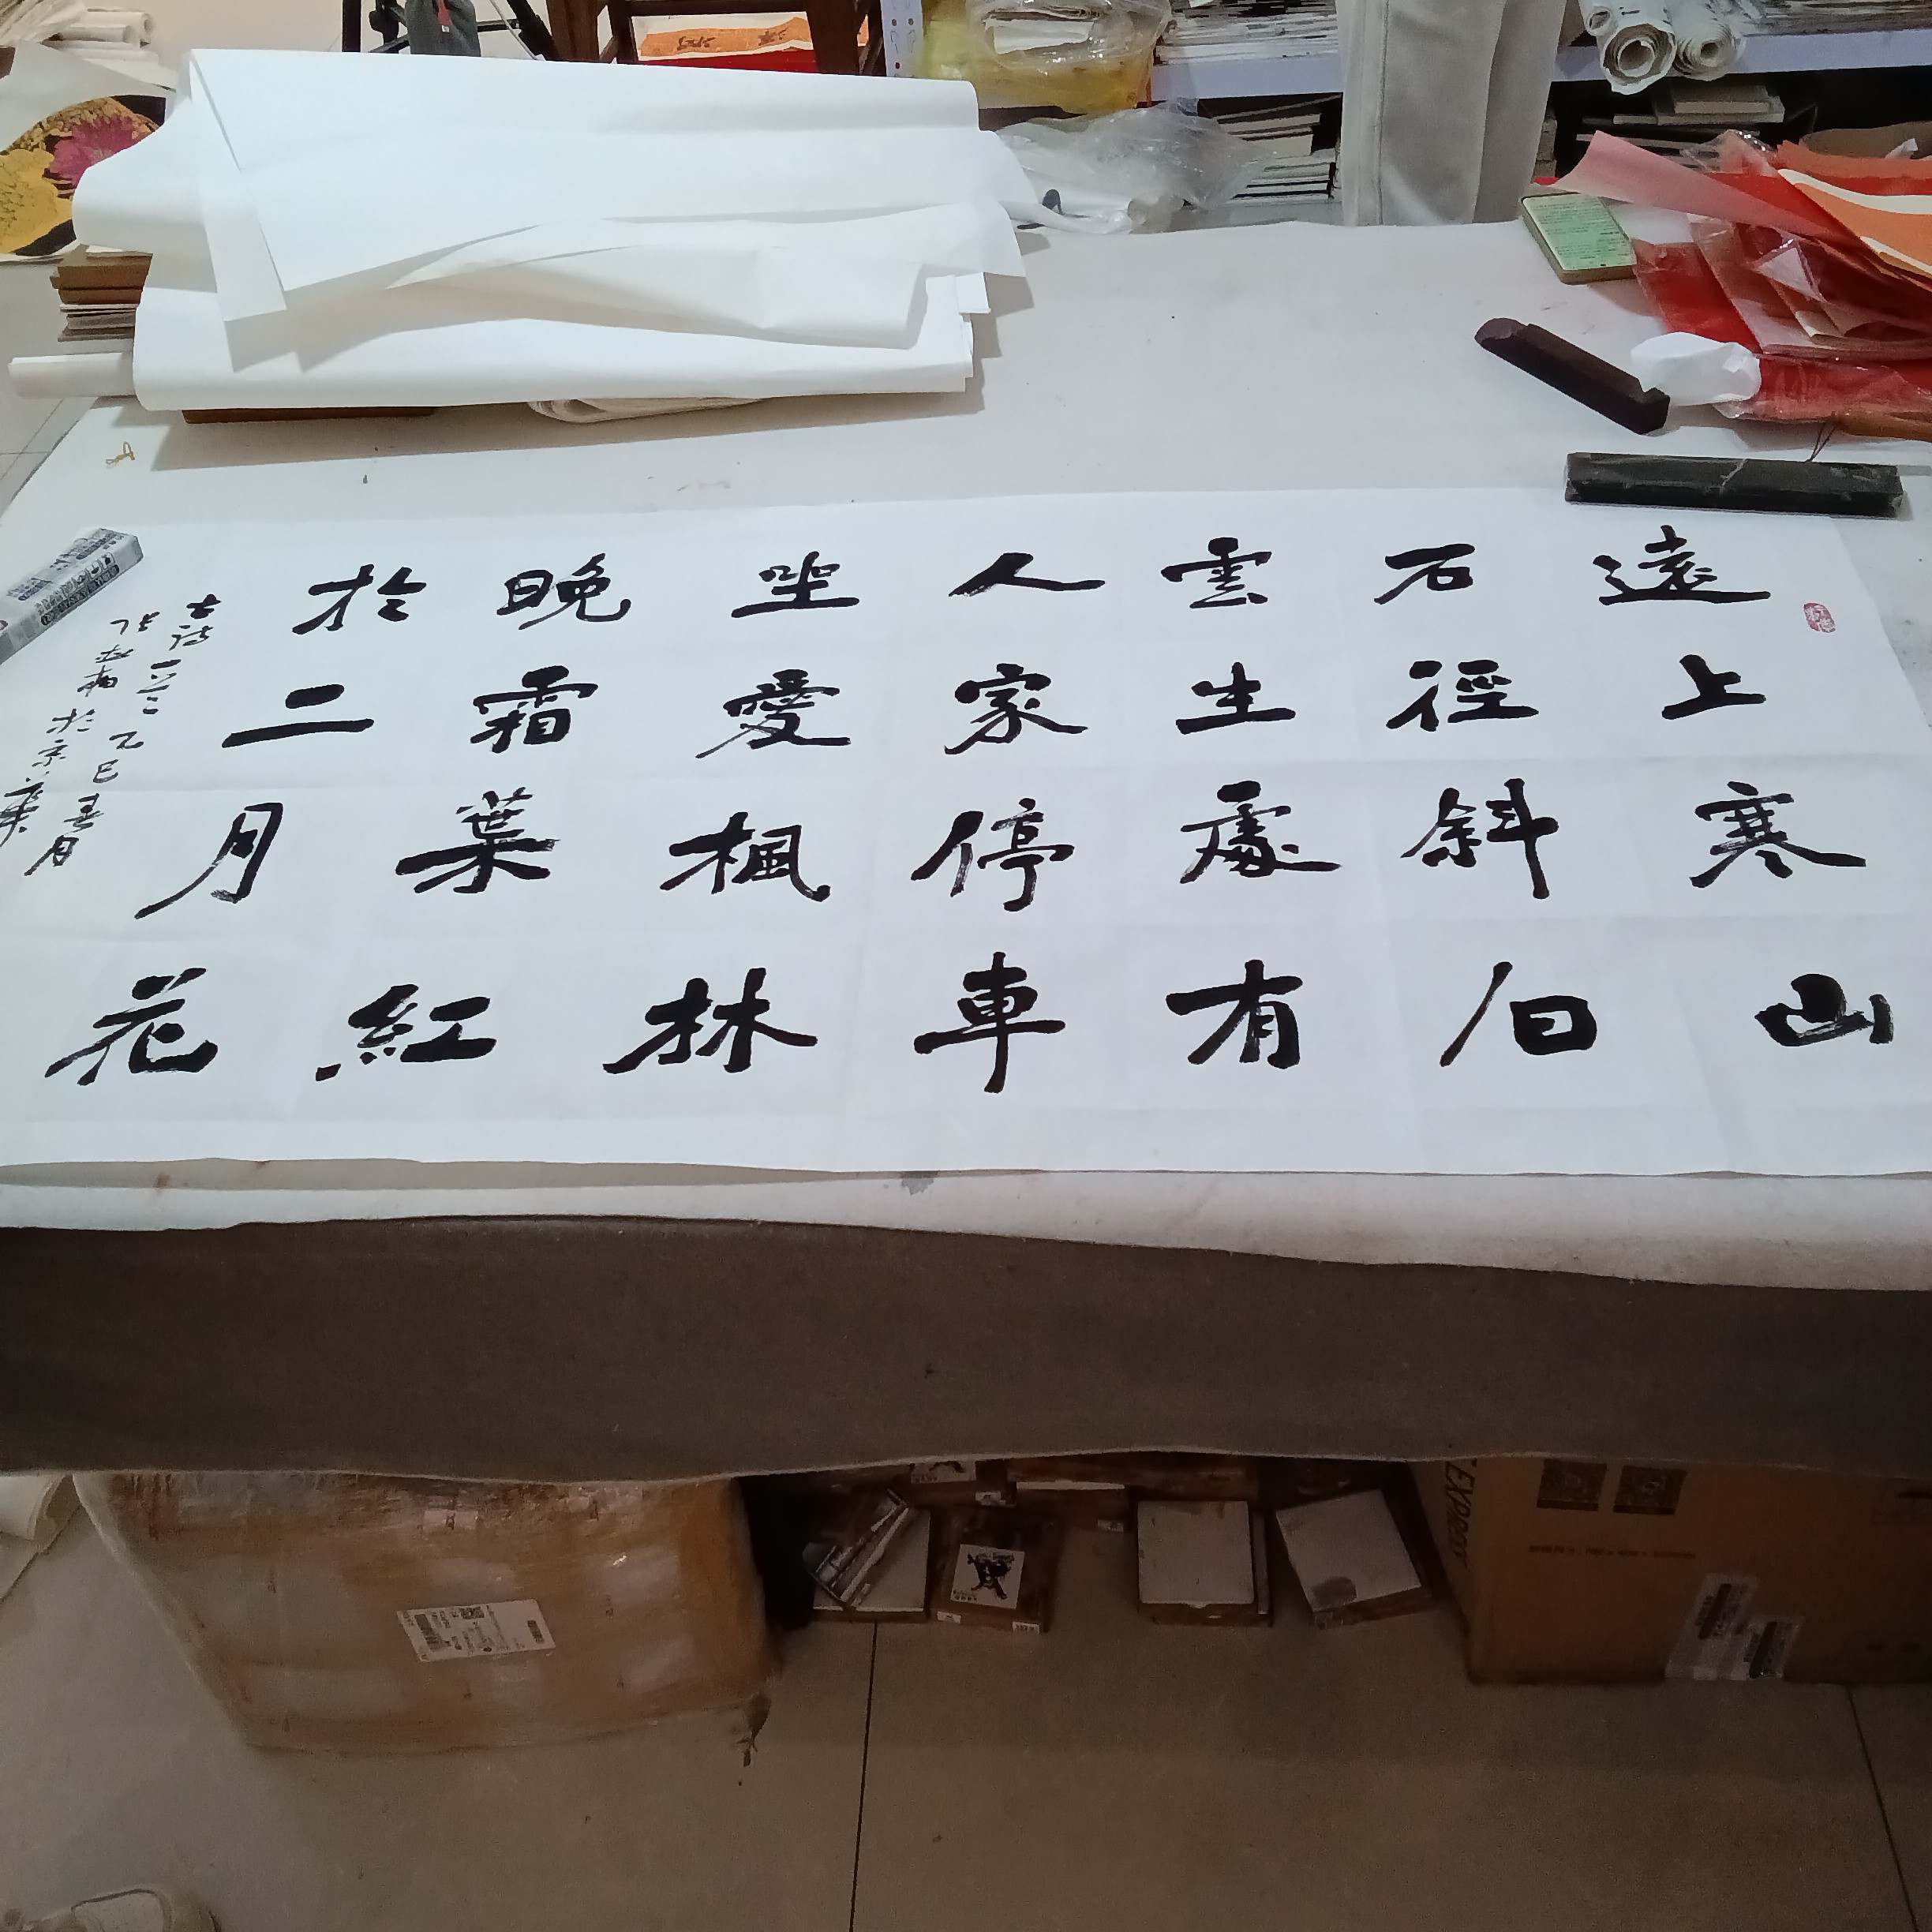 遠上寒山
石徑斜白
雲生處有
人家停車
坐愛楓林
晚霜葉紅
於二月花
古詩一首乙巳春月
於京華